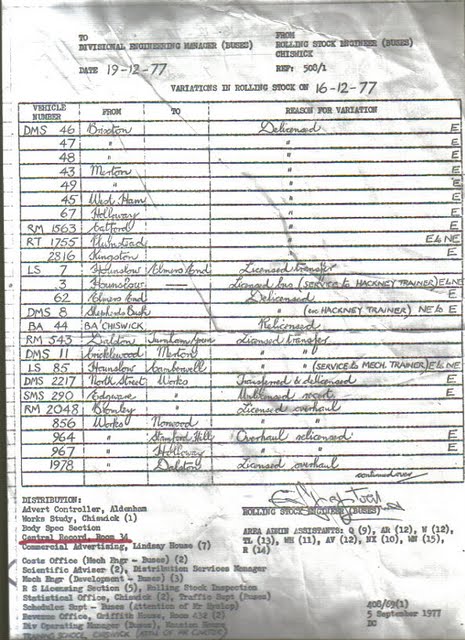 TO
DIVISIONAL ENGINEERING MANAGER (BUSES)
FROM
ROLLING STOCK ENGINEER (BUSES)
CHISWICK
DATE 19-12-77
REF: 508/1
VARIATIONS IN ROLLING STOCK ON 16-12-77
VEHICLE NUMBER FROM TO REASON FOR VARIATION
DMS 46 Brixton Delicensed E
47 " " E
48 " " E
43 Merton " E
49 " " E
45 West Ham " E
67 Holloway " E
RM 1563 Catford " E
RT 1755 Plumstead " E & NE
2816 Kingston " E
LS 7 Hounslow Elmers End Licensed transfer
3 Hounslow — Licensed bus (SERVICE to HACKNEY TRAINER) E & NE
62 Elmers End Delicensed E
DMS 8 Shepherds Bush " (ex HACKNEY TRAINER) NE to E
BA 44 BA CHISWICK Relicensed
RM 543 Dalston Turnham Green Licensed transfer
DMS 11 Cricklewood Merton " "
LS 85 Hounslow Camberwell " " (SERVICE to MECH. TRAINER) E & NE
DMS 2217 North Street Works Transferred & delicensed E
SMS 290 Edgware " Unlicensed E
RM 2048 Bromley " Licensed overhaul
856 Works Norwood "
964 " Stamford Hill Overhaul relicensed E
967 " Holloway " E
1978 " Dalston Licensed overhaul
continued over
DISTRIBUTION:
Advert Controller, Aldenham
Works Study, Chiswick (1)
Body Spec Section
Central Record, Room
Commercial Advertising, Lindsay House (7)
Costs Office (Mech Engr - Buses) (2)
Scientific Adviser (2), Distribution Services Manager
Mech Engr (Development - Buses) (3)
R S Licensing Section (5), Rolling Stock Inspection
Statistical Office, Chiswick (2), Traffic Supt (Buses)
Schedules Supt - Buses (Attention of Mr Hyslop)
Revenue Office, Griffith House, Room 432 (2)
Operating Manager (Buses), Mansion House
TRAINING SCHOOL, CHISWICK
ROLLING STOCK ENGINEER (BUSES)
AREA ADMIN ASSISTANTS: Q (9), AR (12), W (12),
TL (13), WH (11), AV (12), NX (10), WN (15),
R (14)
408/09(1)
5 September 1977
DC